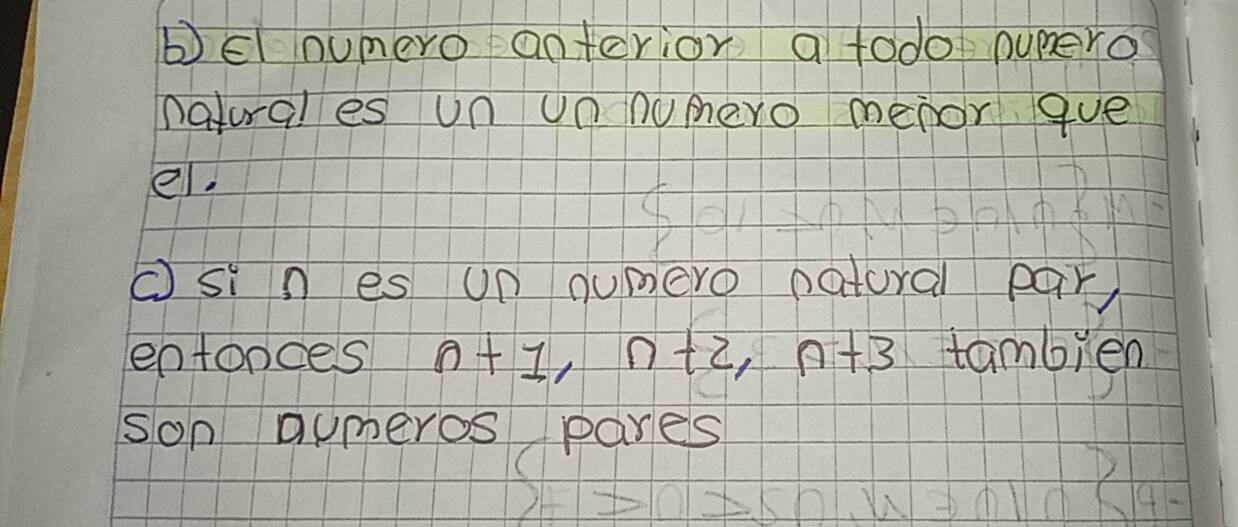 b) El numero anterior a todo numero
natural es un un numero menor que
el.
c) si n es un numero natural par,
entonces n+1, n+2, n+3 tambien
son numeros pares